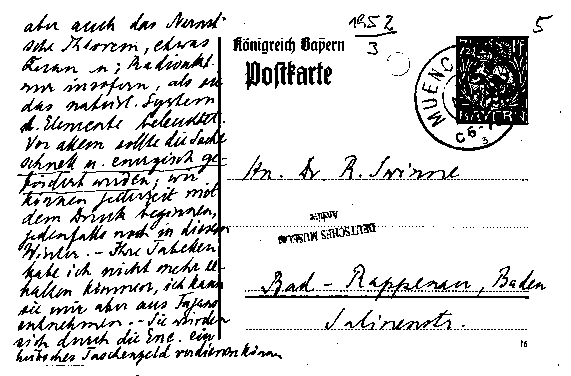 aber auch das Nernst-
sche Theorem, etwas
Kan u; Radioakt.
nur insofern, als es
das natürl. System
d. Elemente beleuchtet.
Vor allem sollte die Sache
schnell u. energisch ge-
fördert werden; wir
können jederzeit mit
dem Druck beginnen,
jedenfalls noch in diesem
Winter. - Ihre Tabellen
habe ich nicht mehr er-
halten können, ich kann
sie mir aber aus Fajans
entnehmen. - Sie würden
sich durch die Enc. ein
hübsches Taschengeld verdienen können
1952
3
5
Königreich Bayern
Postkarte
MUENC
BAYERN
An. Dr. R. Swinne
DEUTSCHES MUSEUM
Archiv
Bad - Rappenau, Baden
Salinenstr.
16